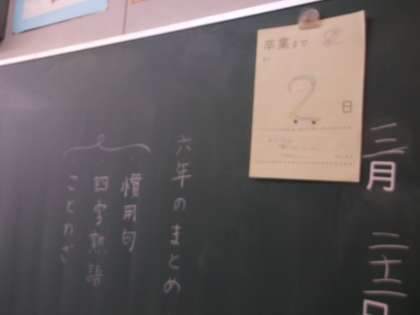 三月二十二日
卒業まで
2
日
六年のまとめ
慣用句
四字熟語
ことわざ